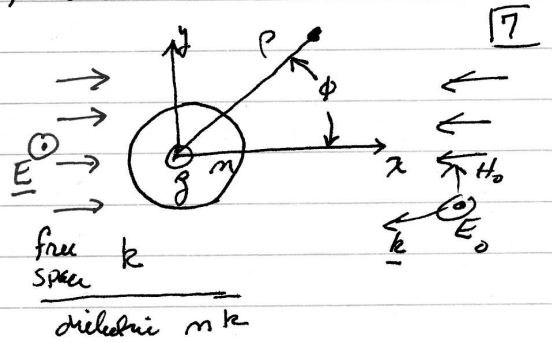 7
y
ρ
ϕ
E
n
x
z
H₀
k
E₀
free
space k
dielectric nk